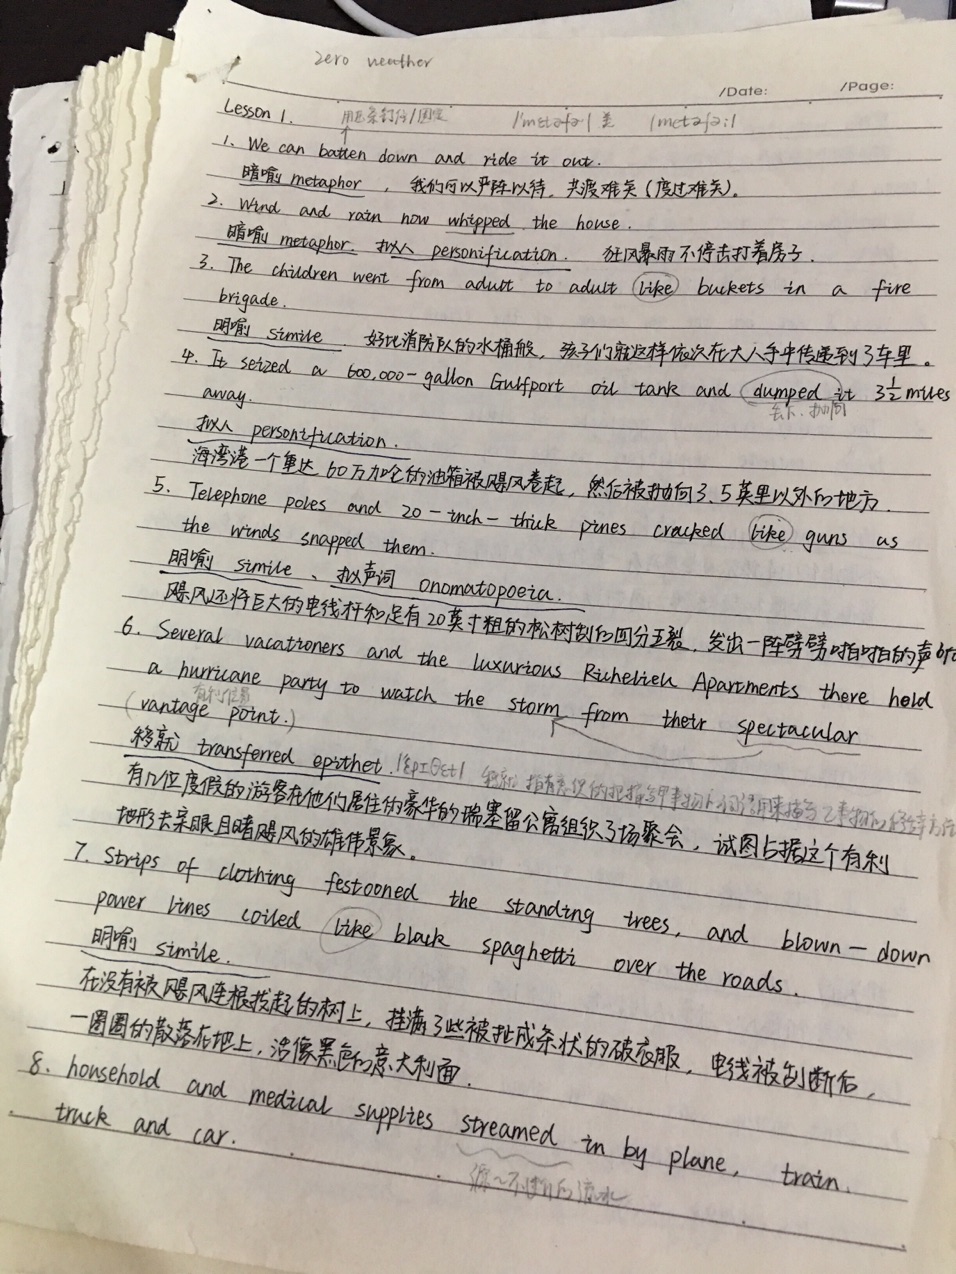 zero weather
/Date: /Page:
Lesson 1. 用压条钉住/固定 /'metəfə·/ 美 /metəfə:/
1. We can batten down and ride it out.
暗喻 metaphor , 我们可以严阵以待,共渡难关(度过难关)。
2. Wind and rain now whipped the house.
暗喻 metaphor. 拟人 personification. 狂风暴雨不停击打着房子.
3. The children went from adult to adult like buckets in a fire
brigade.
明喻 simile. 好比消防队的水桶般,孩子们就这样依次在大人手中传递到了车里。
4. It seized a 600,000-gallon Gulfport oil tank and dumped it 3½ miles
away. 丢下、抛向
拟人 personification.
海湾港一个重达60万加仑的油箱被飓风卷起,然后被抛向3.5英里以外的地方.
5. Telephone poles and 20-inch-thick pines cracked like guns as
the winds snapped them.
明喻 simile、拟声词 onomatopoeia.
飓风还将巨大的电线杆和足有20英寸粗的松树刮的四分五裂,发出一阵劈劈啪啪的声
6. Several vacationers and the luxurious Richelieu Apartments there held
a hurricane party to watch the storm from their spectacular
有利位置
(vantage point.)
移就 transferred epithet. /'epɪθet/ 移就 指有意识的把描写甲事物的词语用来描写乙事物的
有几位度假的游客在他们居住的豪华的瑞塞留公寓组织了场聚会,试图占据这个有利
地形去亲眼目睹飓风的雄伟景象。
7. Strips of clothing festooned the standing trees, and blown-down
power lines coiled like black spaghetti over the roads.
明喻 simile.
在没有被飓风连根拔起的树上,挂满了些被扯成条状的破衣服,电线被刮断后,
一圈圈的散落在地上,活像黑色的意大利面.
8. household and medical supplies streamed in by plane, train,
truck and car.